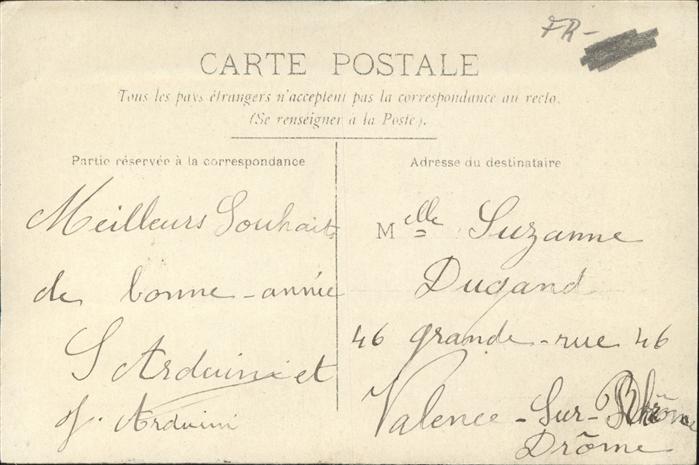 FR-
CARTE POSTALE
Tous les pays étrangers n'acceptent pas la correspondance au recto.
(Se renseigner à la Poste).
Partie réservée à la correspondance
Meilleurs Souhaits
de bonne-année
S Arduini et
J. Arduini
Adresse du destinataire
Melle Suzanne
Dugand
46 grande-rue 46
Valence-Sur-Rhône
Drôme